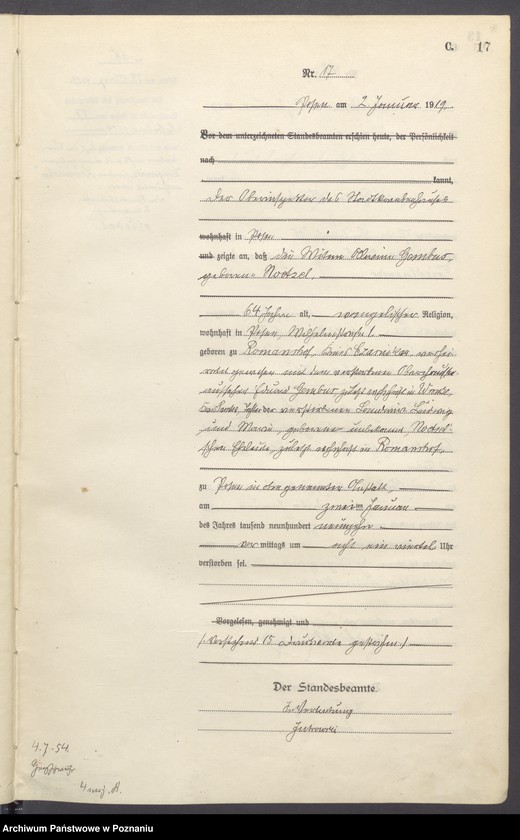 C. 17
Nr. 17
Posen am 2. Januar 1919.
Vor dem unterzeichneten Standesbeamten erschien heute, der Persönlichkeit
nach
kannt,
der Oberinspektor des Stadtkrankenhauses
wohnhaft in Posen
und zeigte an, daß die Witwe
geborene Noetzel,
64 Jahre alt, evangelischer Religion,
wohnhaft in Posen, Wilhelmstraße 1
geboren zu Romanshof, Kreis Czarnikau, verhei-
ratet gewesen mit dem verstorbenen
Eduard zuletzt wohnhaft in
Tochter der verstorbenen Ludwig
und Maria, geborene unbekannt, Noetzel-
schen Eheleute, zuletzt wohnhaft in Romanshof,
zu Posen in der genannten Anstalt,
am zweiten Januar
des Jahres tausend neunhundert neunzehn
vor mittags um acht ein viertel Uhr
verstorben sei.
Vorgelesen, genehmigt und
(Vorstehend 15 Druckworte gestrichen.)
Der Standesbeamte.
In Vertretung
4.7.54.
Archiwum Państwowe w Poznaniu